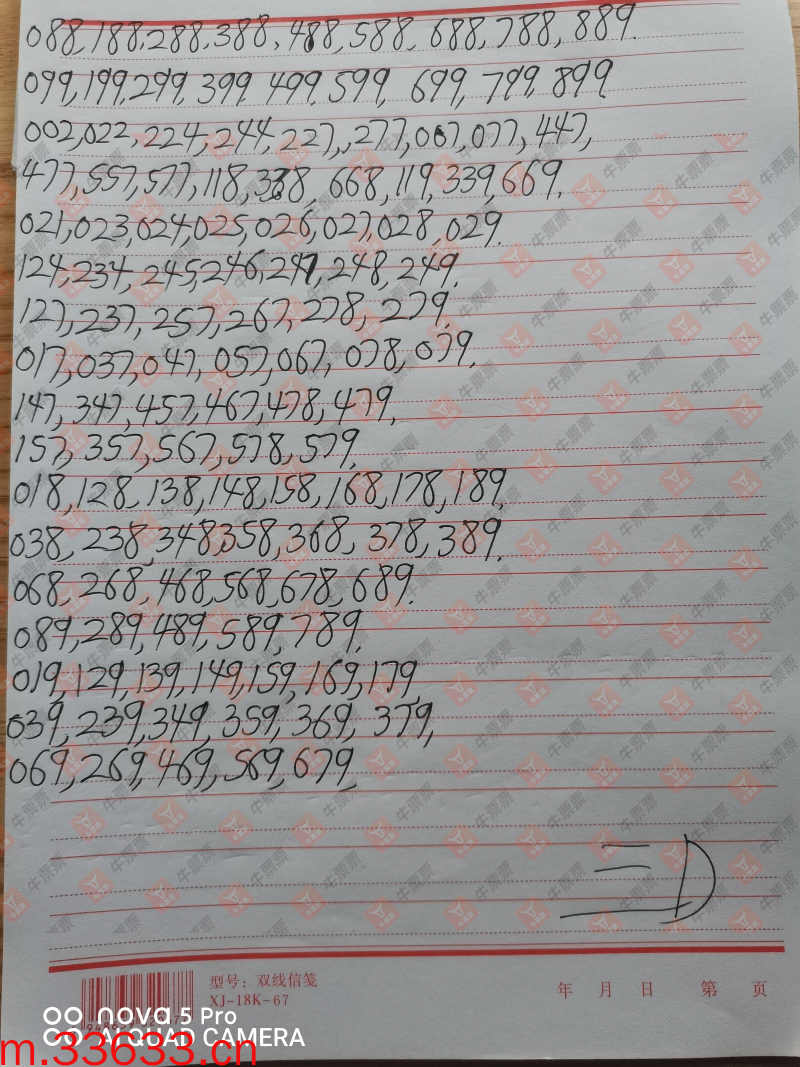 088,188,288,388,488,588,688,788,889.
099,199,299,399,499,599,699,799,899.
002,022,224,244,227,,277,007,077,447,
477,557,577,118,338,668,119,339,669.
021,023,024,025,026,027,028,029.
124,234,245,246,247,248,249.
127,237,257,267,278,279.
017,037,047,057,067,078,079.
147,347,457,467,478,479,
157,357,567,578,579,
018,128,138,148,158,168,178,189,
038,238,348,358,368,378,389.
068,268,468,568,678,689.
089,289,489,589,789.
019,129,139,149,159,169,179,
039,239,349,359,369,379,
069,269,469,569,679,
三D
型号：双线信笺
XJ-18K-67
年 月 日 第 页
nova 5 Pro
AI QUAD CAMERA
m.33633.cn
牛票票